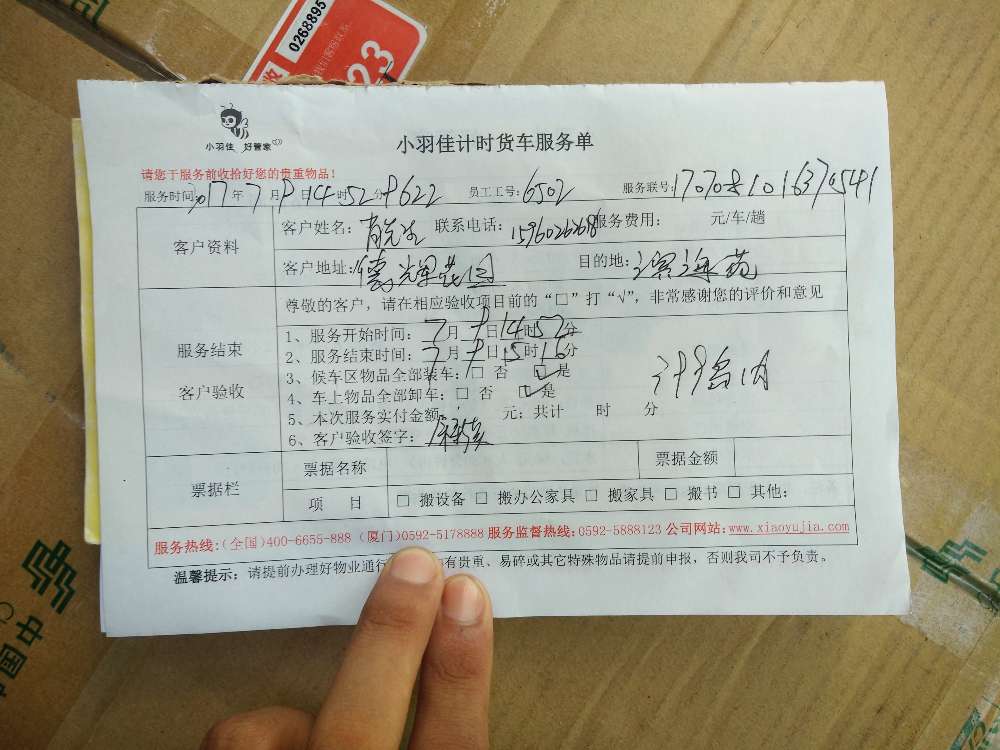 0268895
23
小羽佳 好管家
小羽佳计时货车服务单
请您于服务前收拾好您的贵重物品!
服务时间: 2017年7月9日14时52分 员工工号: 6502 服务联号:
客户资料
客户姓名: 肖先生 联系电话: 服务费用: 元/车/趟
客户地址: 德辉花园 目的地:
服务结束
客户验收
尊敬的客户,请在相应验收项目前的“□”打“√”,非常感谢您的评价和意见
1、服务开始时间: 7月9日14时52分
2、服务结束时间: 7月9日15时16分
3、候车区物品全部装车: □ 否 ☑ 是
4、车上物品全部卸车: □ 否 ☑ 是
5、本次服务实付金额: 元; 共计 时 分
6、客户验收签字:
票据栏
票据名称 票据金额
项 目 □ 搬设备 □ 搬办公家具 □ 搬家具 □ 搬书 □ 其他:
服务热线:(全国)400-6655-888 (厦门)0592-5178888 服务监督热线:0592-5888123 公司网站:www.xiaoyujia.com
温馨提示: 请提前办理好物业通行 有贵重、易碎或其它特殊物品请提前申报,否则我司不予负责。
中国